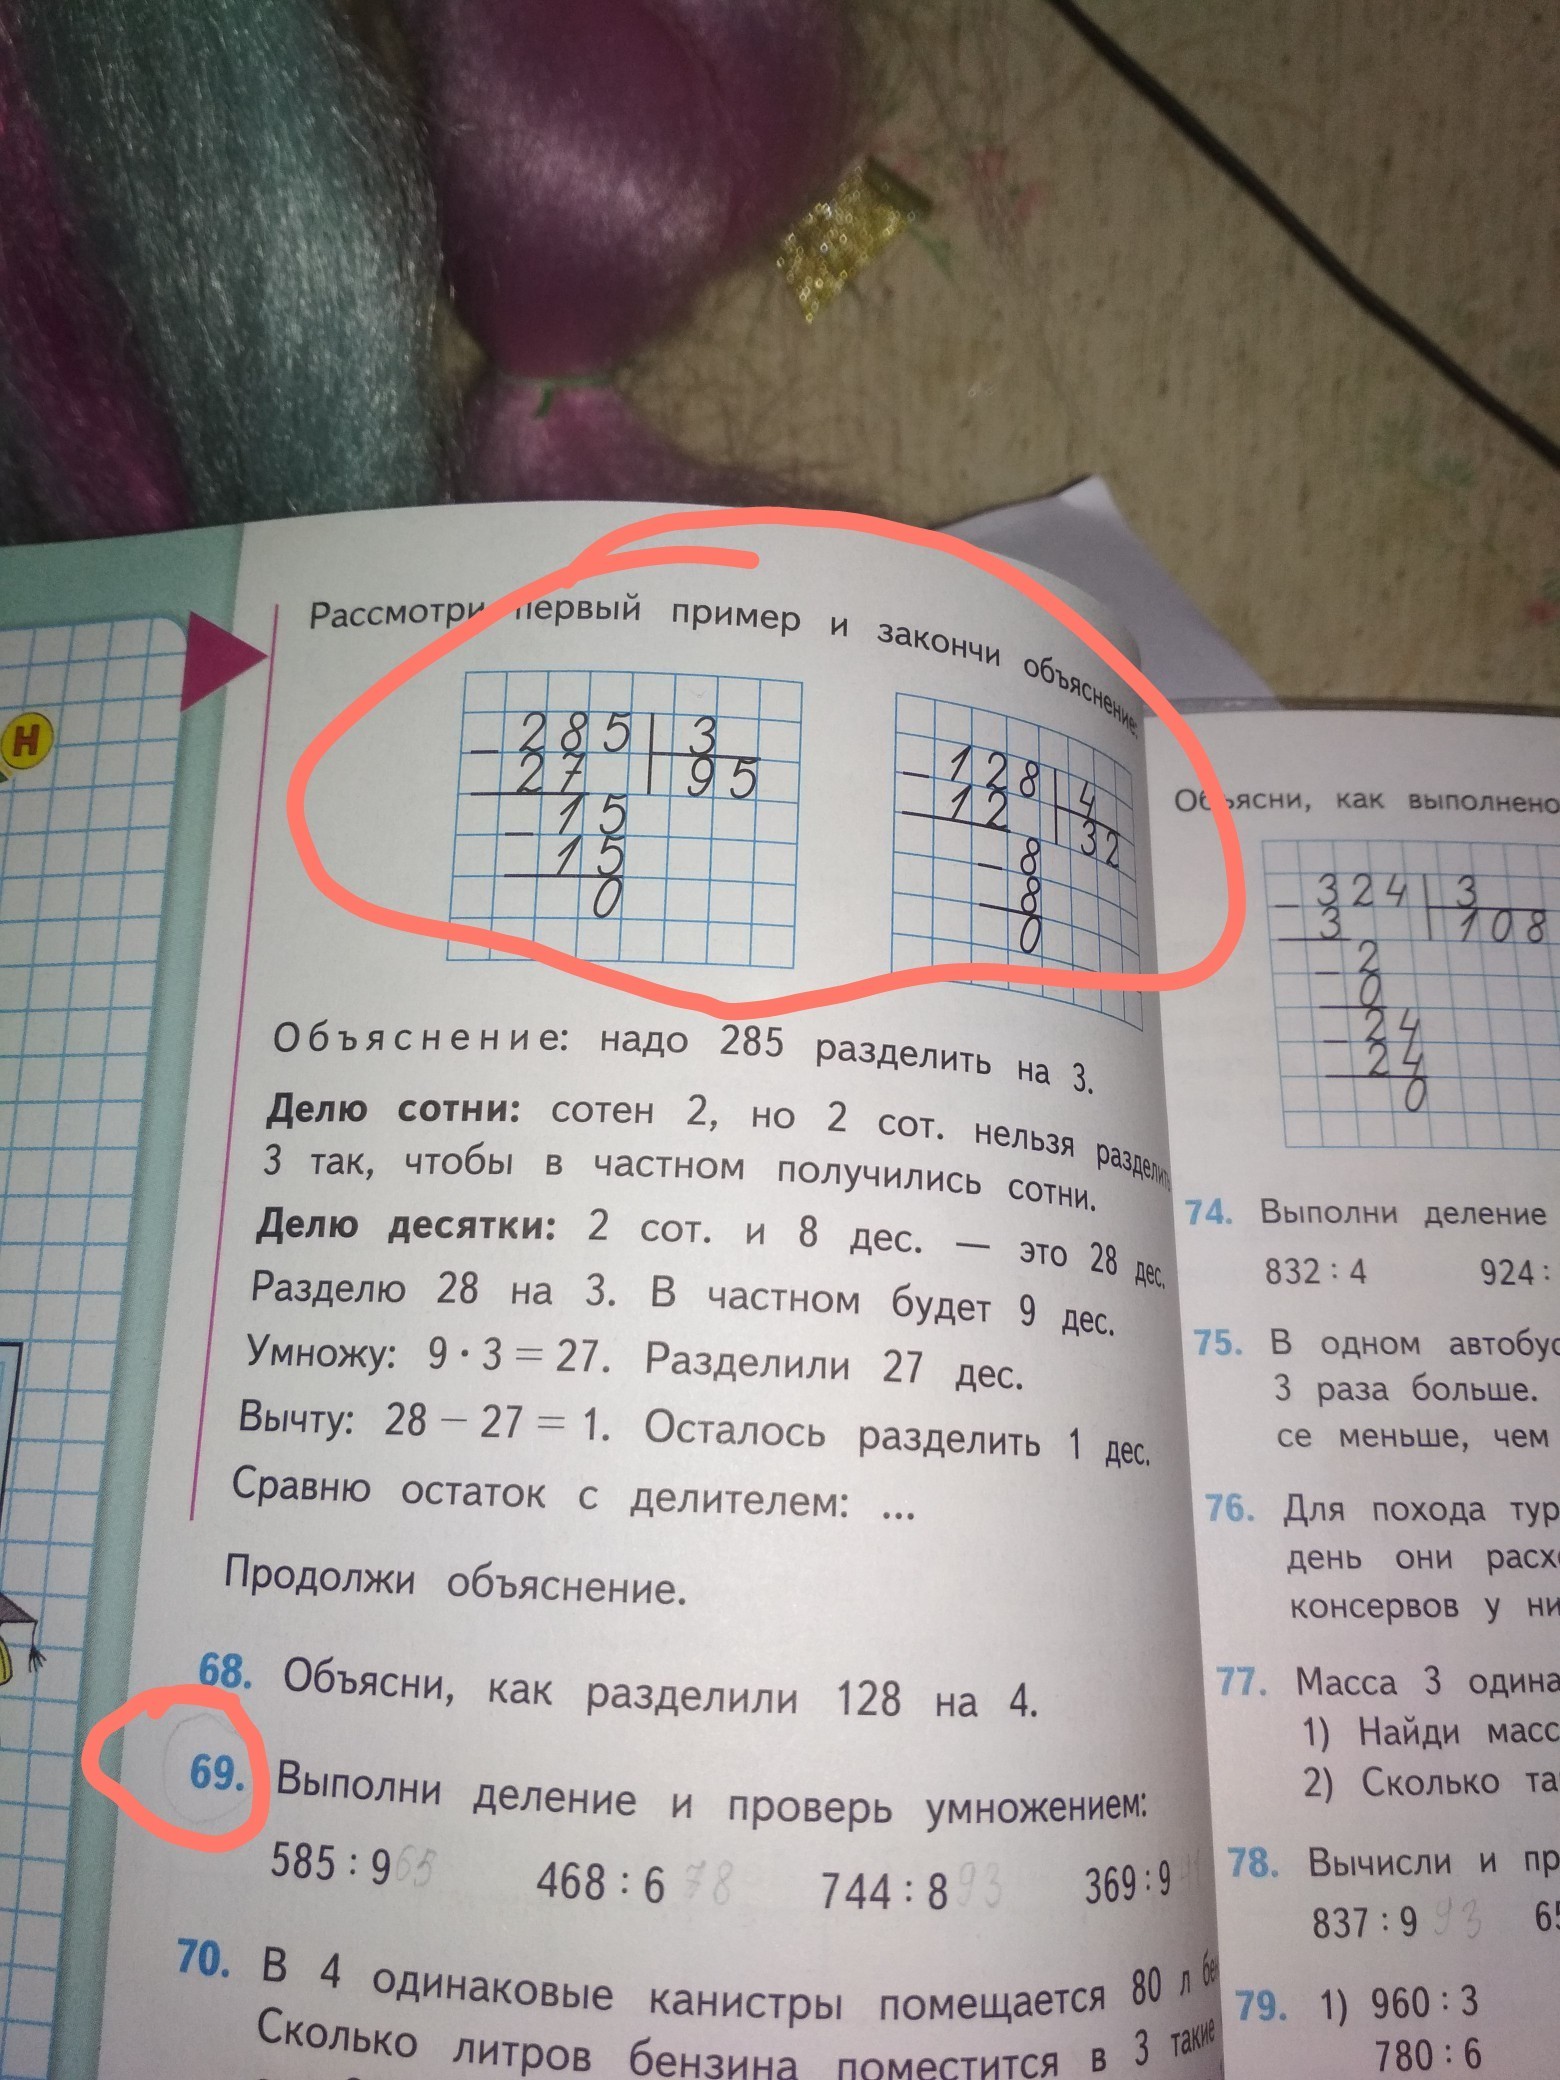 Н
Рассмотри первый пример и закончи объяснение:
285 3
27 95
15
15
0
128 4
12 32
8
8
0
Объяснение: надо 285 разделить на 3.
Делю сотни: сотен 2, но 2 сот. нельзя разделить
3 так, чтобы в частном получились сотни.
Делю десятки: 2 сот. и 8 дес. — это 28 дес.
Разделю 28 на 3. В частном будет 9 дес.
Умножу: 9 · 3 = 27. Разделили 27 дес.
Вычту: 28 – 27 = 1. Осталось разделить 1 дес.
Сравню остаток с делителем: ...
Продолжи объяснение.
68. Объясни, как разделили 128 на 4.
69. Выполни деление и проверь умножением:
585 : 9 65 468 : 6 78 744 : 8 93 369 : 9
70. В 4 одинаковые канистры помещается 80 л
Сколько литров бензина поместится в 3 такие
Объясни, как выполнено
324 3
3 108
2
0
24
24
0
74. Выполни деление
832 : 4 924 :
75. В одном автобус
3 раза больше.
се меньше, чем
76. Для похода тур
день они расх
консервов у ни
77. Масса 3 одина
1) Найди масс
2) Сколько та
78. Вычисли и пр
837 : 9 93 65
79. 1) 960 : 3
780 : 6